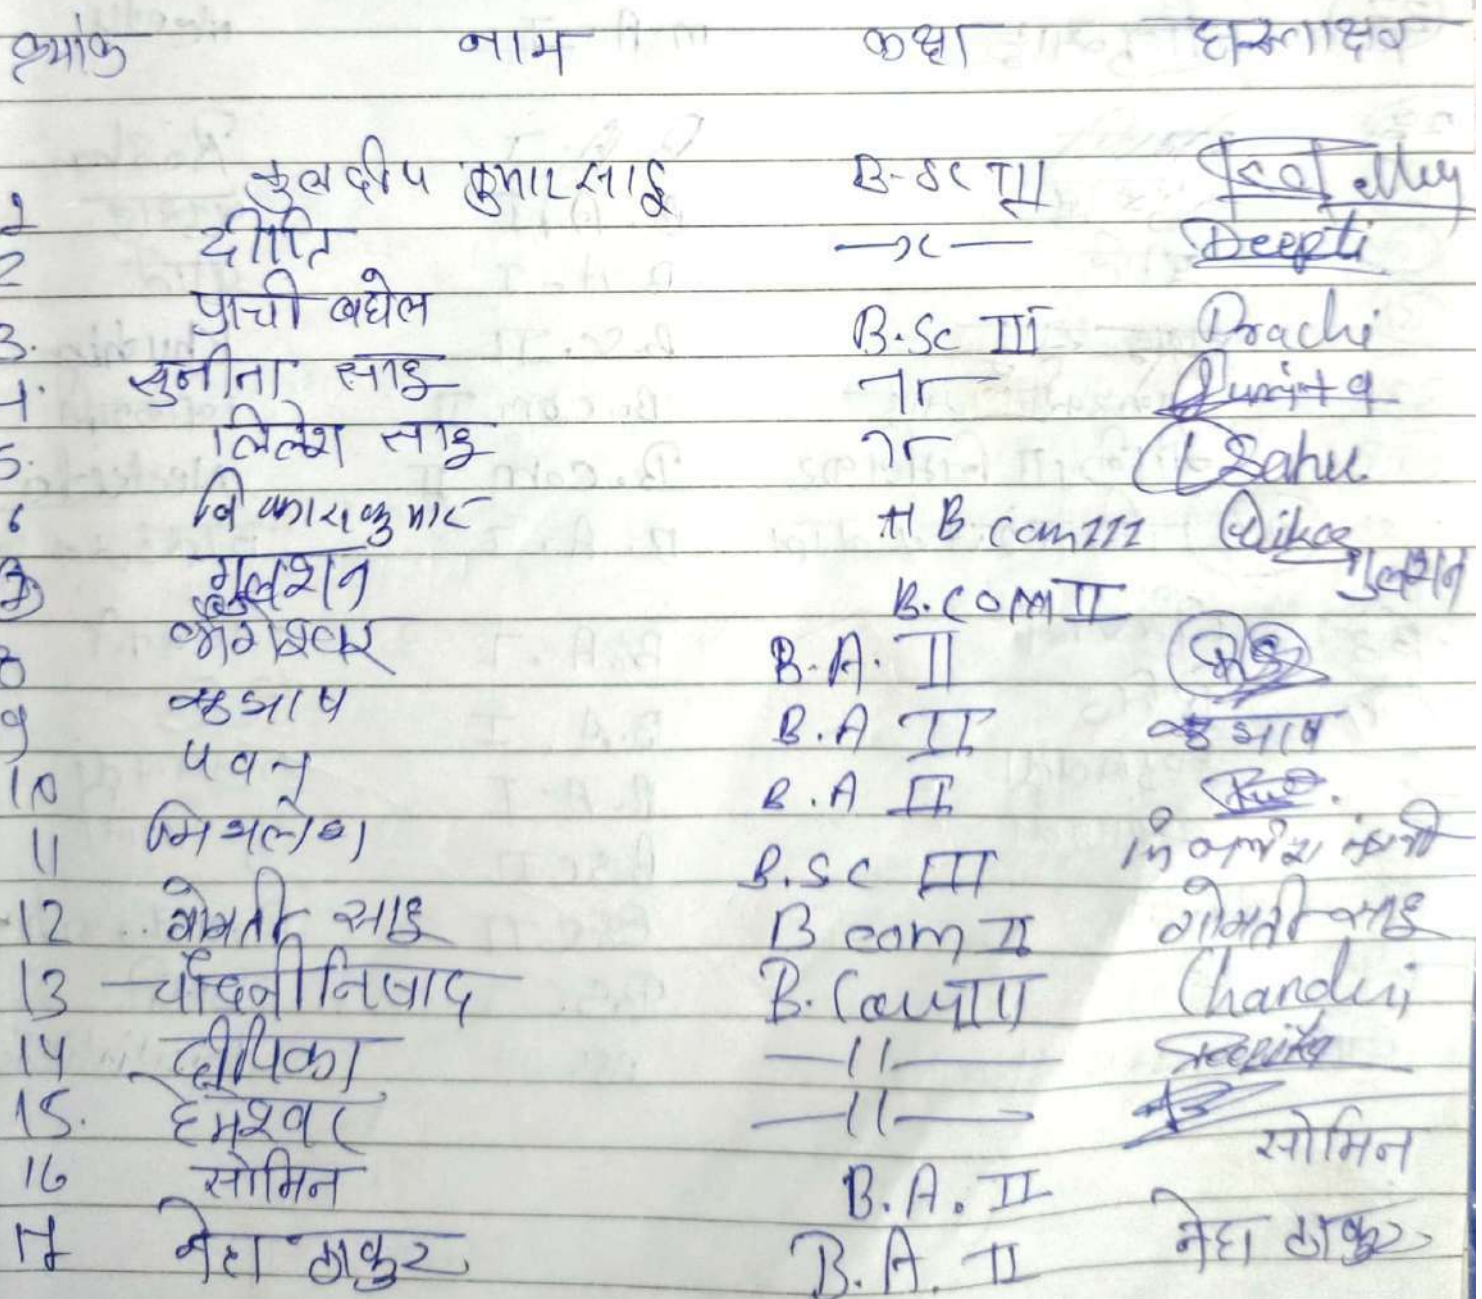 क्रमांक नाम कक्षा हस्ताक्षर
1 कुलदीप कुमार साहू B-Sc III
2 दीप्ति —x— Deepti
3. प्राची बघेल B.Sc III Prachi
4. सुनीता साहू 7r Sunita
5. लिलेश साहू 7r LSahu
6 विकास कुमार B com III Vikas
7 गुलशन B.com II गुलशन
8 B.A. II
9 B.A II
10 पवन B.A II
11 मिथलेश B.SC III
12 गोमती साहू B com II गोमती साहू
13 चाँदनी निषाद B.Com III Chandni
14 दीपिका —11— Deepika
15. हेमेश्वर —11—
16 सोमिन B.A. II सोमिन
17 नेहा ठाकुर B.A. II नेहा ठाकुर